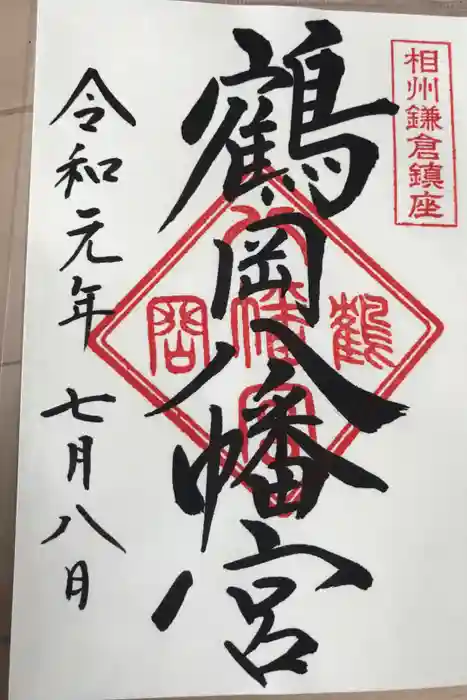 相州鎌倉鎮座
鶴岡八幡宮
鶴
八幡宮
岡
令和元年 七月八日